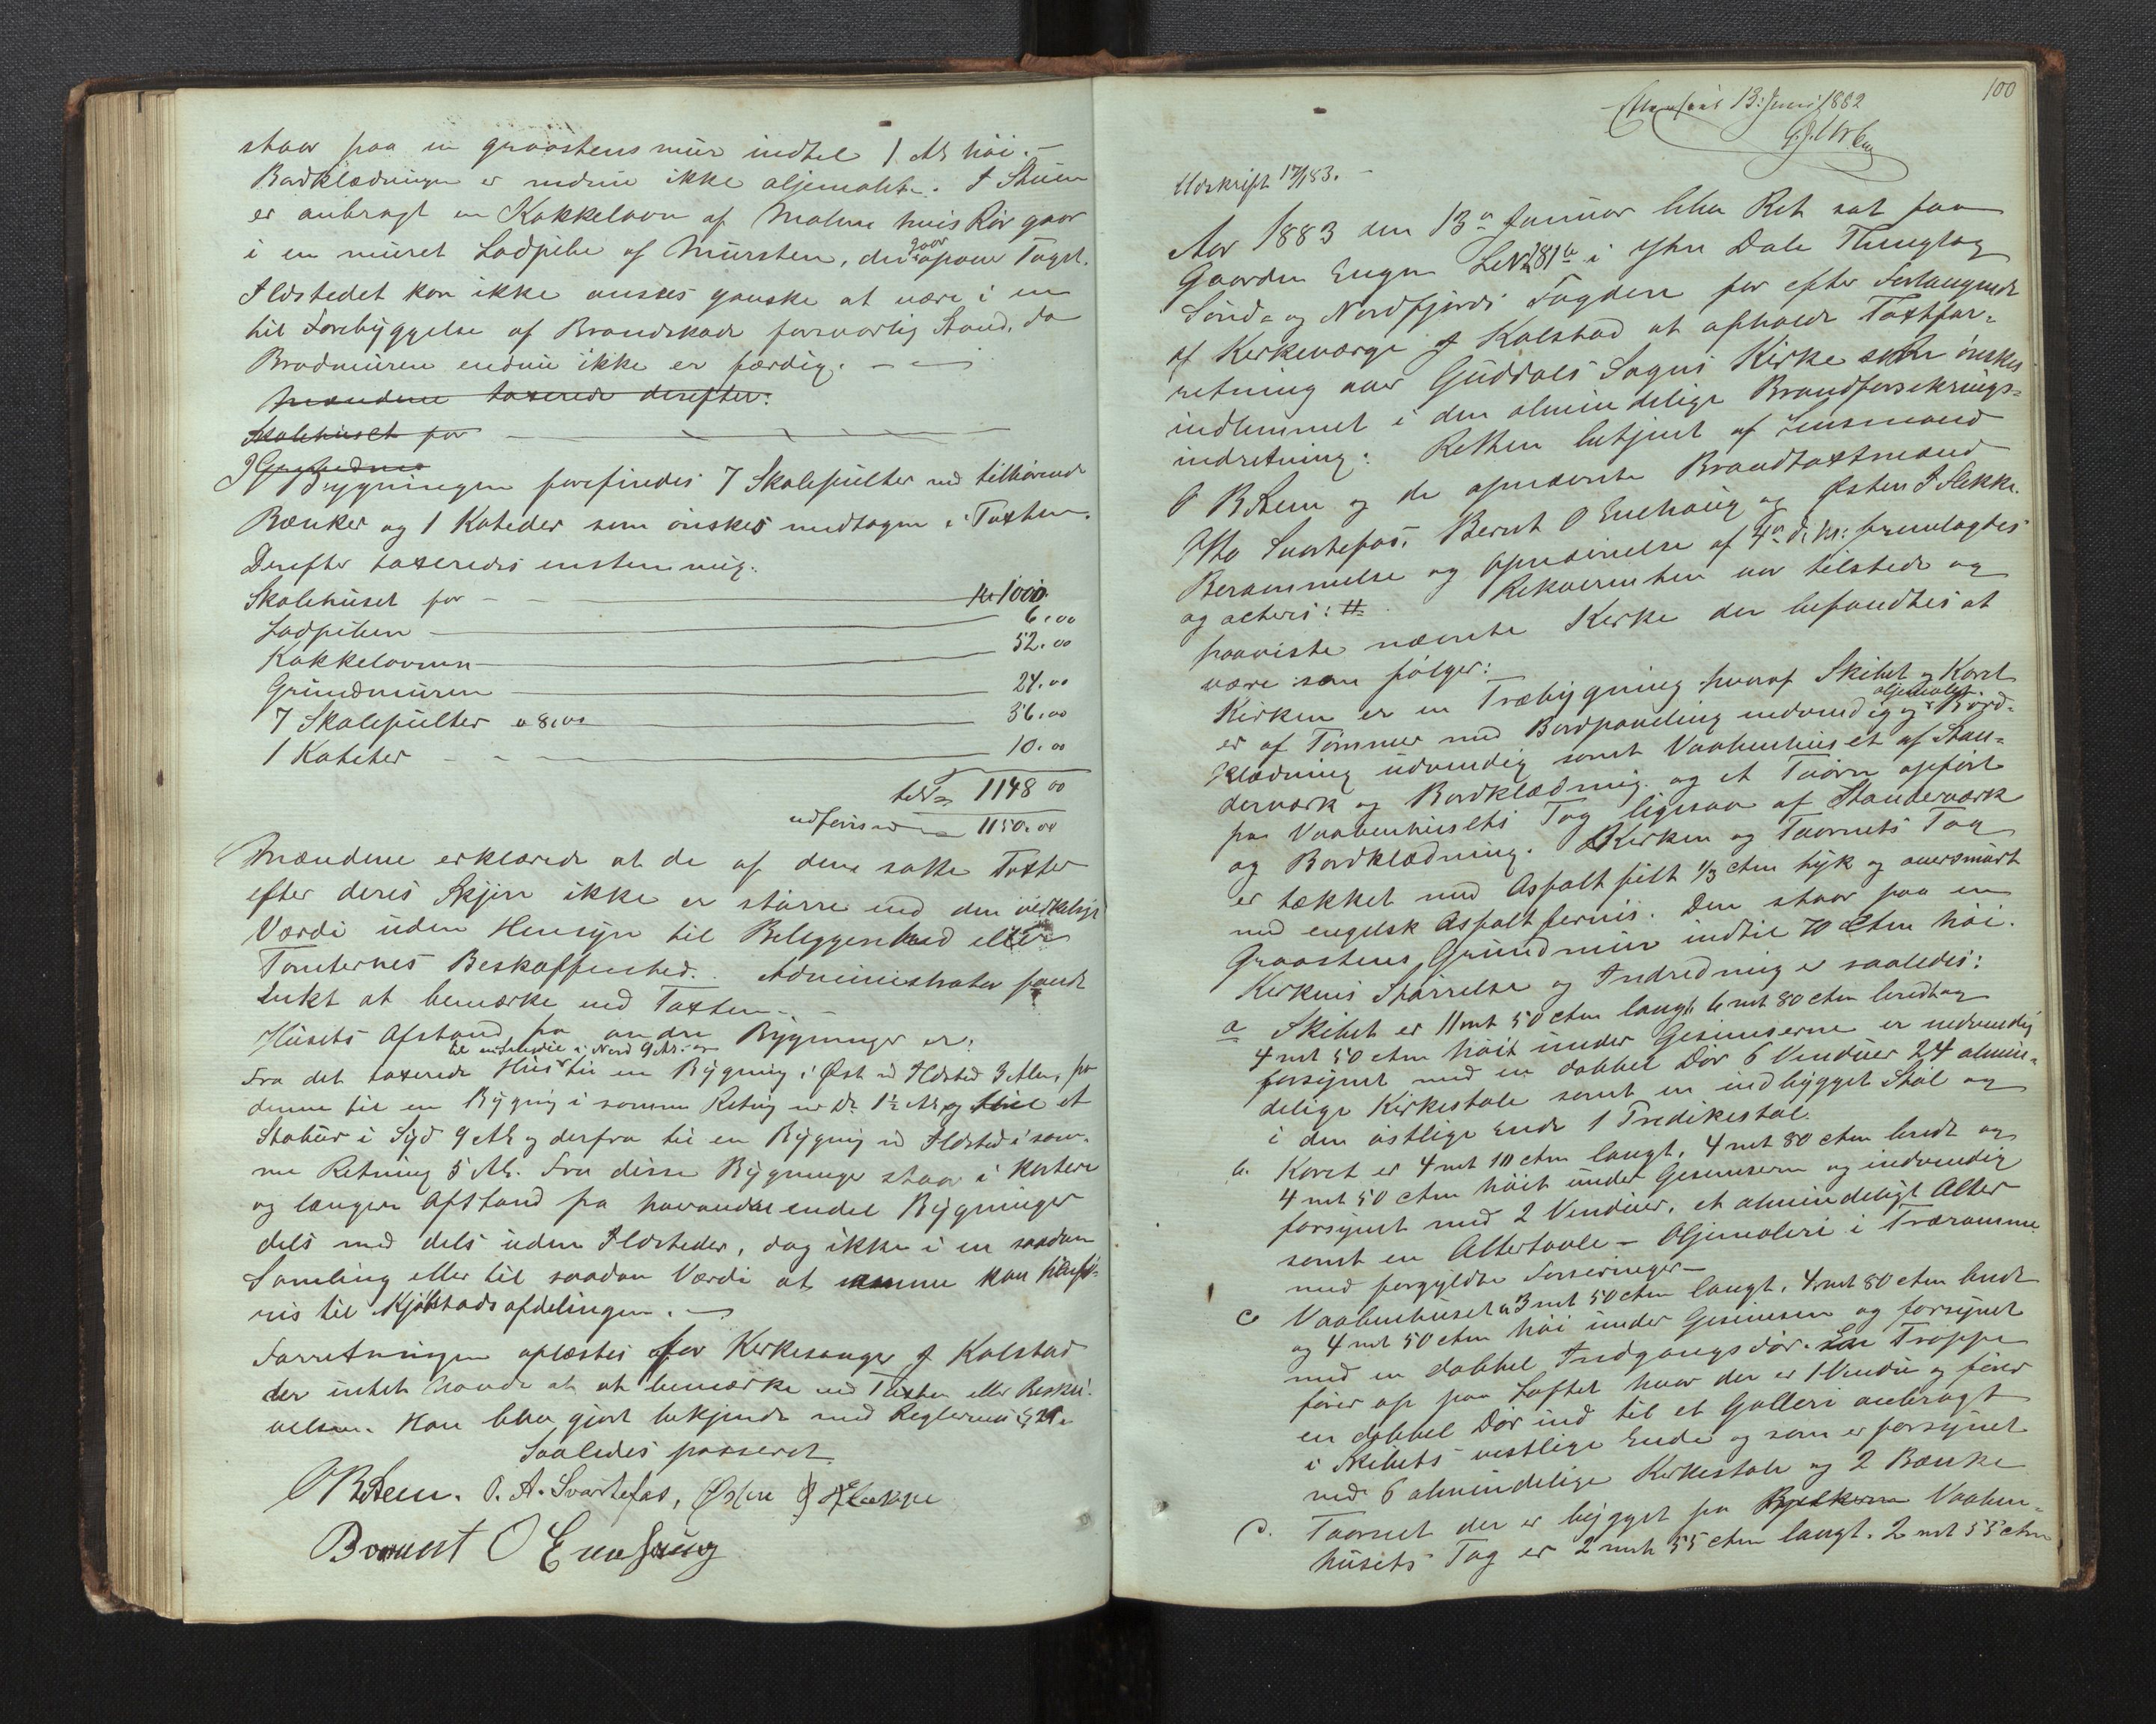 staar paa en graastensmur indtil 1 Al. høi. –
Bordklædningen er endnu ikke oljemalet. I Stuen
er anbragt en Kakkelovn af Malm hvis Rør gaar
i en muret Ladpibe af Mursten, der gaar op over Taget.
Ildstedet kan ikke ansees ganske at være i en
til Forebyggelse af Brandskade forsvarlig Stand, da
Brandmuren endnu ikke er færdig. – –
Mændene taxerede derefter:
Skolehuset for
I Bygningen forefindes 7 Skolepulter med tilhørende
Bænker og 1 Kateder som ønskes medtagen i Taxten.
Derefter taxeredes enstemmig.
Skolehuset for – Kr 1000.
Ladpiben – 6.00
Kakkelovnen – 52.00
Grundmuren – 24.00
7 Skolepulter a 8.00 – 56.00
1 Kateter – 10.00
1148 00
udføres med 1150.00
Mændene erklærede at de af dem satte Taxter
efter deres Skjøn ikke er større end den virkelige
Værdi uden Hensyn til Beliggenhed eller
Tomternes Beskaffenhed. Administrator fandt
Intet at bemærke ved Taxten. –
Husets Afstand fra andre Bygninger er:
til en i Nord 9 Al. og
Fra det taxerede Hus til en Bygning i Øst m Ildsted 3 Alen, fra
denne til en Bygning i samme Retning m Do 1½ Al. og til et
Stabur i Syd 9 Al. og derfra til en Bygning m Ildsted i sam-
me Retning 5 Al. Fra disse Bygninger staar i kortere
og længere Afstand fra hverandre endel Bygninger
dels med dels uden Ildsteder, dog ikke i en saadan
Samling eller til saadan Værdi at samme kan henfø-
res til Kjøbstadsafdelingen. –
Forretningen oplæstes for Kirkesanger J Kalstad
der intet havde at bemærke ved Taxten eller Beskri-
velsen. Han blev gjort bekjendt med Reglernes § 29.
Saaledes passeret
O B Lem. O. A. Svartefos, Østen J Flekke
Bernt O Enehaug
100
13. Juni 1882
Udskrift 17/1 83. –
Aar 1883 den 13de Januar blev Ret sat paa
Gaarden Engen L No 281 b i Ytre Dale Thinglag
Sønd- og Nordfjords Fogderi for efter Forlangende
af Kirkeværge J Kalstad at afholde Taxtfor-
retning over Guddals Sogns Kirke som ønskes
indlemmet i den almindelige Brandforsikrings-
indretning. Retten betjent af Lensmand
O B Lem og de opnævnte Brandtaxtmænd
Otto Svartefos, Bernt O Enehaug og Østen J Flekke.
Berammelse og Opnævnelse af 4de d. M. fremlagdes
og acteres: # Rekvirenten var tilstede og
paaviste nævnte Kirke der befandtes at
være som følger:
Kirken er en Træbygning hvoraf Skibet og Koret
er af Tømmer med Bordpaneling indvendig og oljemalet Bord-
klædning udvendig samt Vaabenhuset af Stan-
derværk og Bordklædning og et Taarn opført
paa Vaabenhusets Tag ligesaa af Standerværk
og Bordklædning. Kirken og Taarnets Tag
er tækket med Asfaltfilt 1/3 ctm tyk og oversmurt
med engelsk Asfaltfernis. Den staar paa en
Graastens Grundmur indtil 70 Ctm høi.
Kirkens Størrelse og Indredning er saaledes:
a Skibet er 11 mt 50 ctm langt, 6 mt 80 ctm bredt og
4 mt 50 ctm høit under Gesimserne er indvendig
forsynet med en dobbel Dør 6 Vinduer 24 almin-
delige Kirkestole samt en indbygget Stol og
i den østlige Ende 1 Prædikestol.
b. Koret er 4 mt 10 ctm langt, 4 mt 80 ctm bredt og
4 mt 50 ctm høit under Gesimserne og indvendig
forsynet med 2 Vinduer, et almindeligt Alter
samt en Altertavle – Oljemaleri i Træramme
med forgyldte Forseringer –
c Vaabenhuset er 3 mt 50 ctm langt, 4 mt 80 ctm bredt
og 4 mt 50 ctm høi under Gesimsen og forsynet
med en dobbel Indgangsdør. En Trappe
fører op paa Loftet hvor der er 1 Vindu og fører
en dobbel Dør ind til et Galleri anbragt
i Skibets vestlige Ende og som er forsynet
med 6 almindelige Kirkestole og 2 Bænke
d. Taarnet der er bygget paa Bjelkerne Vaaben-
husets Tag er 2 mt 55 ctm langt. 2 mt 55 ctm